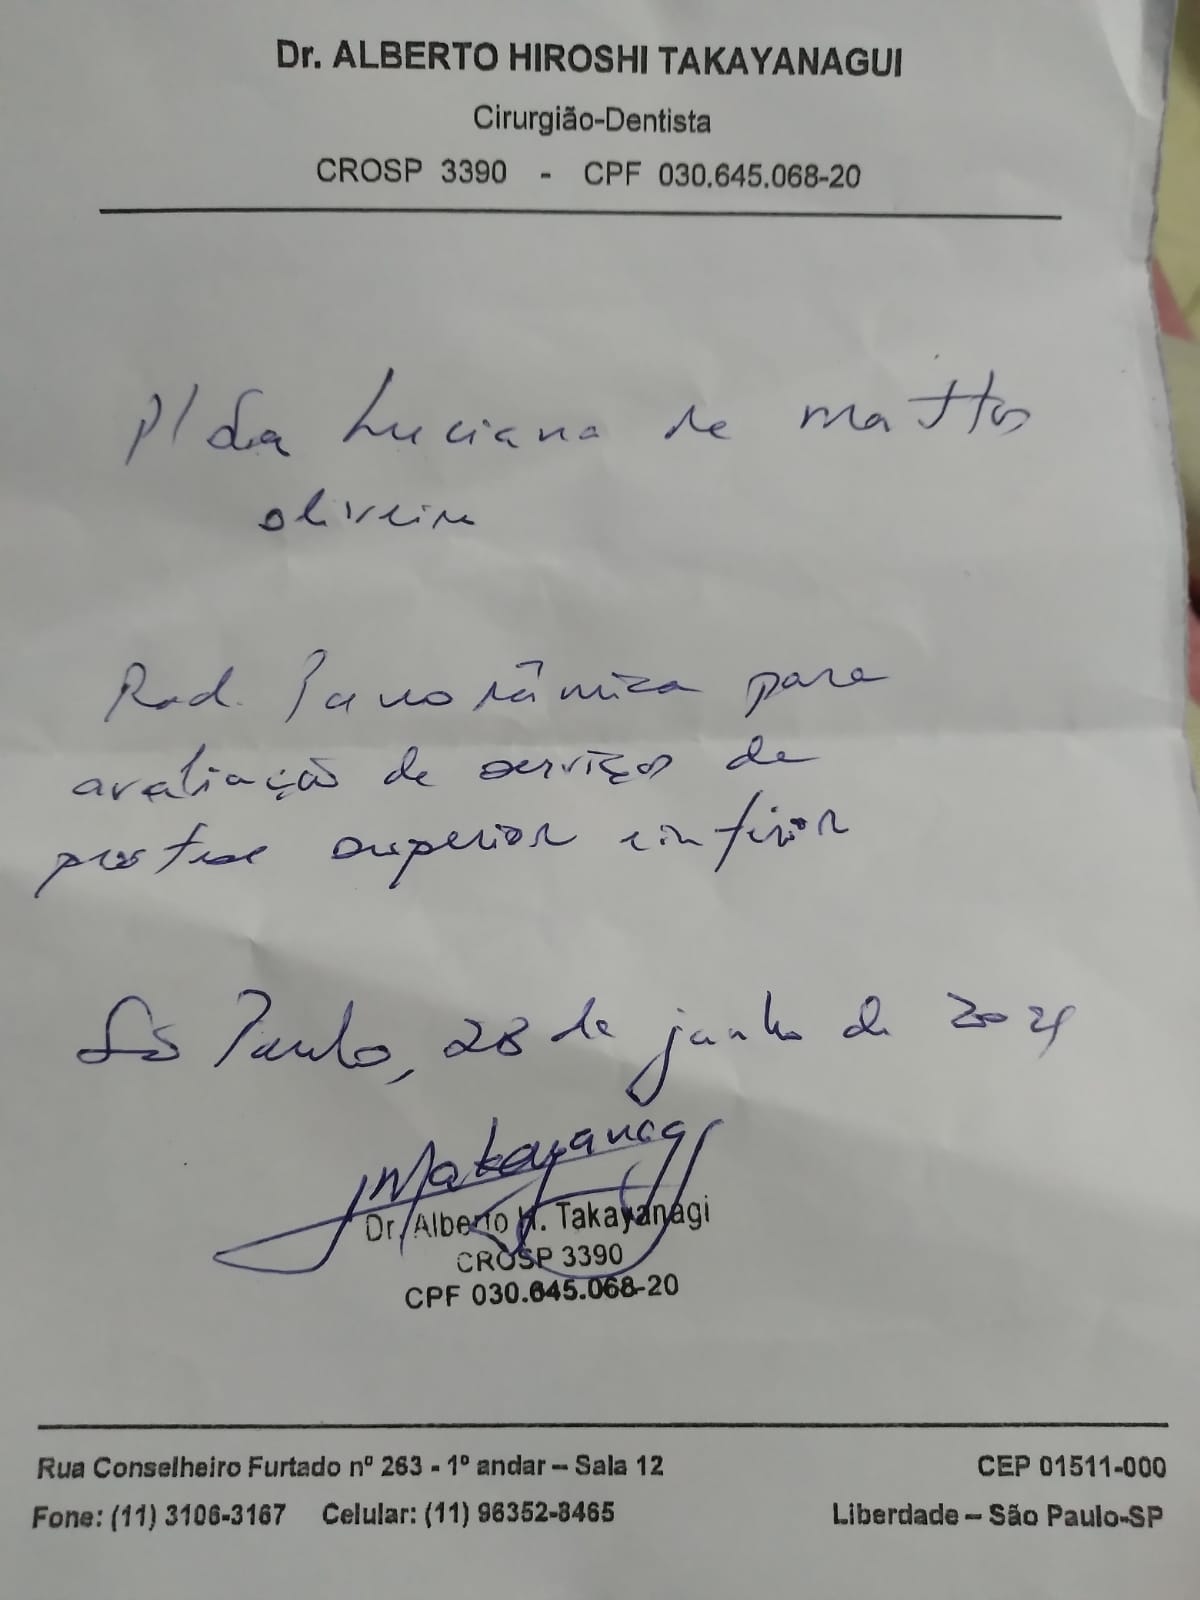 Dr. ALBERTO HIROSHI TAKAYANAGUI
Cirurgião-Dentista
CROSP 3390 - CPF 030.645.068-20
P/ Dra Luciana de Mattos
Oliveira
Rad. Panorâmica para
avaliação de serviços de
protese superior inferior
São Paulo, 28 de junho de 2024
Dr. Alberto H. Takayanagi
CROSP 3390
CPF 030.645.068-20
Rua Conselheiro Furtado nº 263 - 1º andar – Sala 12 CEP 01511-000
Fone: (11) 3106-3167 Celular: (11) 96352-8465 Liberdade – São Paulo-SP